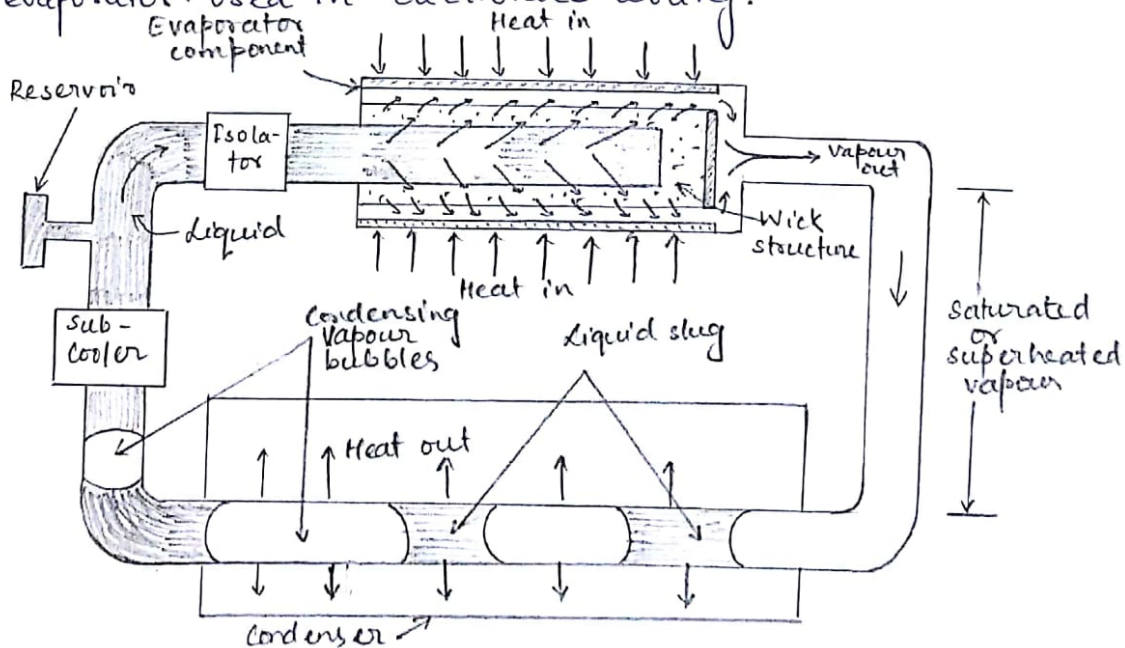 evaporator used in electronics cooling.
Evaporator
component
Heat in
Reservoir
Isola-
tor
Vapour
out
Liquid
Wick
structure
Heat in
Sub-
Cooler
Condensing
Vapour
bubbles
Liquid slug
Saturated
or
superheated
vapour
Heat out
Condenser